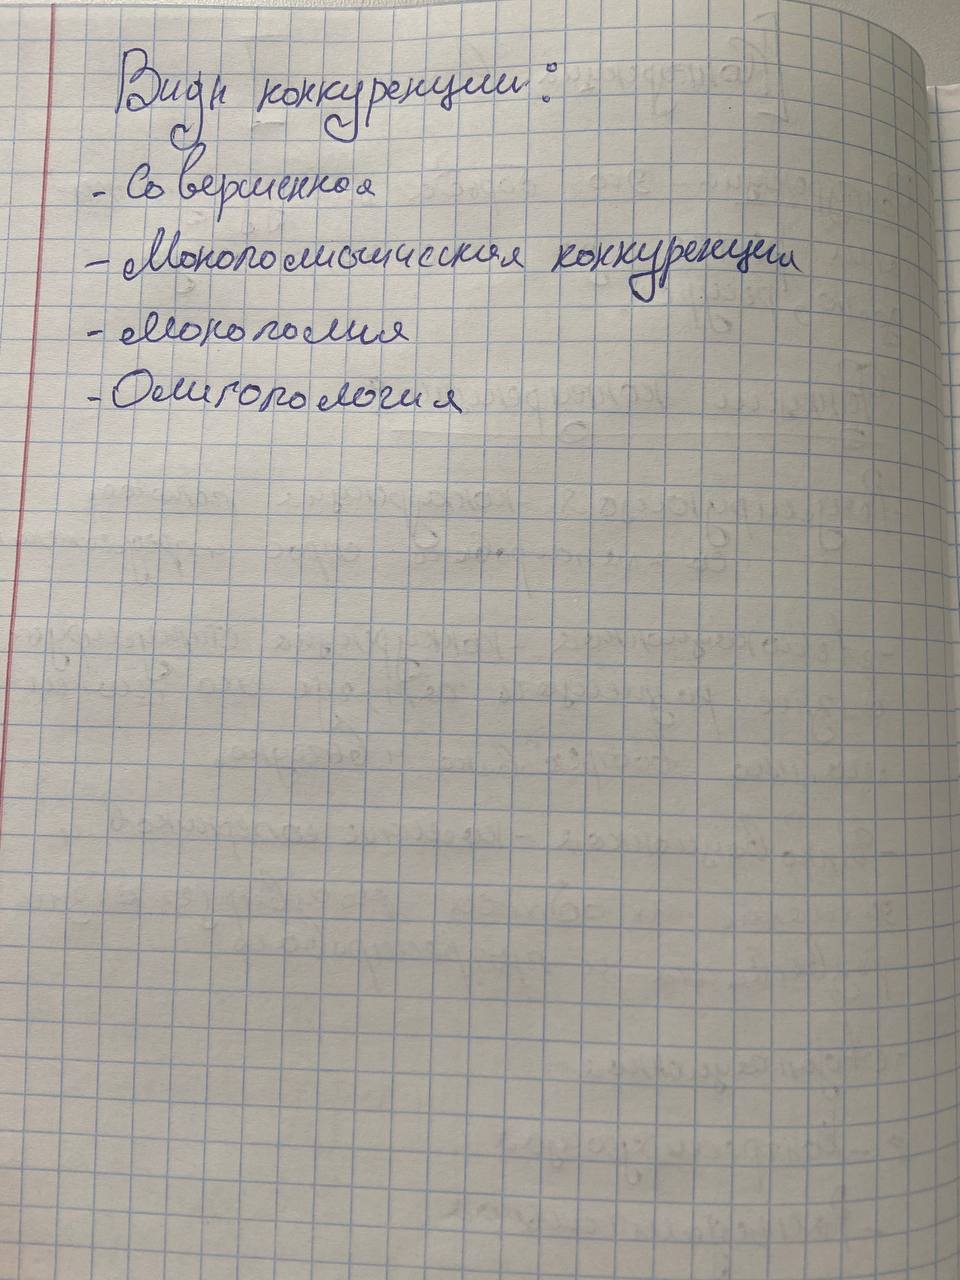 Виды конкуренции:
- Совершенная
- Монополистическая конкуренция
- Монополия
- Олигопология